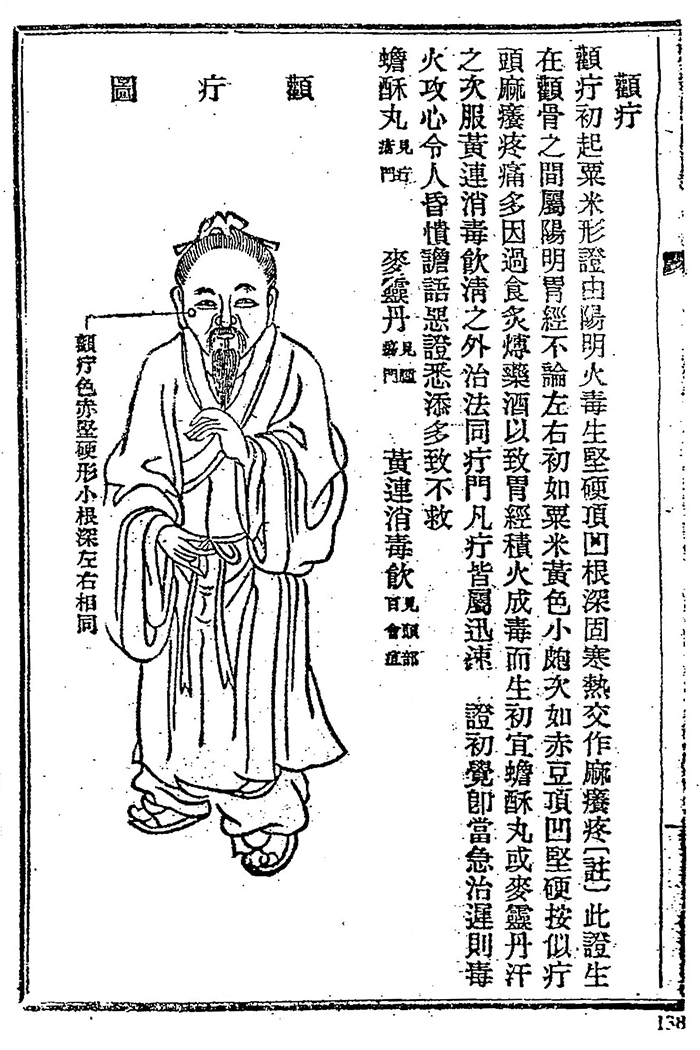 顴疔
顴疔初起粟米形證由陽明火毒生堅硬頂凹根深固寒熱交作麻癢疼〔註〕此證生
在顴骨之間屬陽明胃經不論左右初如粟米黃色小皰次如赤豆頂凹堅硬按似疔
頭麻癢疼痛多因過食炙煿藥酒以致胃經積火成毒而生初宜蟾酥丸或麥靈丹汗
之次服黃連消毒飲清之外治法同疔門凡疔皆屬迅速 證初覺卽當急治遲則毒
火攻心令人昏憒譫語惡證悉添多致不救
蟾酥丸見疔瘡門 麥靈丹見腫瘍門 黃連消毒飲見頭部百會疽
顴疔圖
顴疔色赤堅硬形小根深左右相同
138